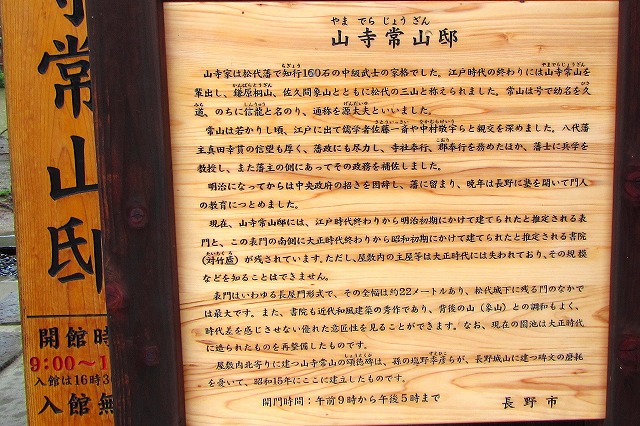 やま でら じょう ざん
山寺常山邸
山寺家は松代藩で知行160石の中級武士の家格でした。江戸時代の終わりには山寺常山を
輩出し、鎌原桐山、佐久間象山とともに松代の三山と称えられました。常山は号で幼名を久
道、のちに信龍と名のり、通称を源太夫といいました。
常山は若かりし頃、江戸に出て儒学者佐藤一斎や中村敬宇らと親交を深めました。八代藩
主真田幸貫の信望も厚く、藩政にも尽力し、寺社奉行、郡奉行を務めたほか、藩士に兵学を
教授し、また藩主の側にあってその政務を補佐しました。
明治になってからは中央政府の招きを固辞し、藩に留まり、晩年は長野に塾を開いて門人
の教育につとめました。
現在、山寺常山邸には、江戸時代終わりから明治初期にかけて建てられたと推定される表
門と、この表門の南側に大正時代終わりから昭和初期にかけて建てられたと推定される書院
(対竹廬)が残されています。ただし、屋敷内の主屋等は大正時代には失われており、その規模
などを知ることはできません。
表門はいわゆる長屋門形式で、その全幅は約22メートルあり、松代城下に残る門のなかで
は最大です。また、書院も近代和風建築の秀作であり、背後の山(象山)との調和もよく、
時代差を感じさせない優れた意匠性を見ることができます。なお、現在の園池は大正時代
に造られたものを再整備したものです。
屋敷内北寄りに建つ山寺常山の頌徳碑は、孫の塩野季彦らが、長野城山に建つ碑文の磨耗
を憂いて、昭和15年にここに建立したものです。
開門時間：午前9時から午後5時まで
長野市
常山邸
開館時
9:00～1
入館は16時30
入館無